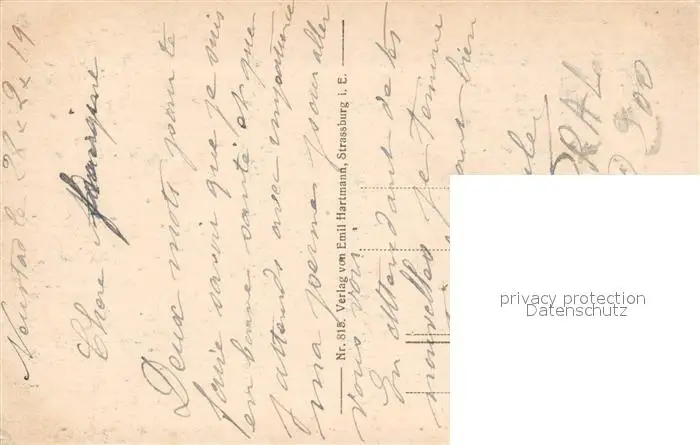 Neustad le 22 x 2 x 19
Chere
Deux mots pour te
faire savoir que je suis
en bonne santé et que
J attends avec impatience
ma permes pour aller
vous voir
En attendant de tes
nouvelles je termine
bien
Nr. 815. Verlag von Emil Hartmann, Strassburg i. E.
privacy protection
Datenschutz